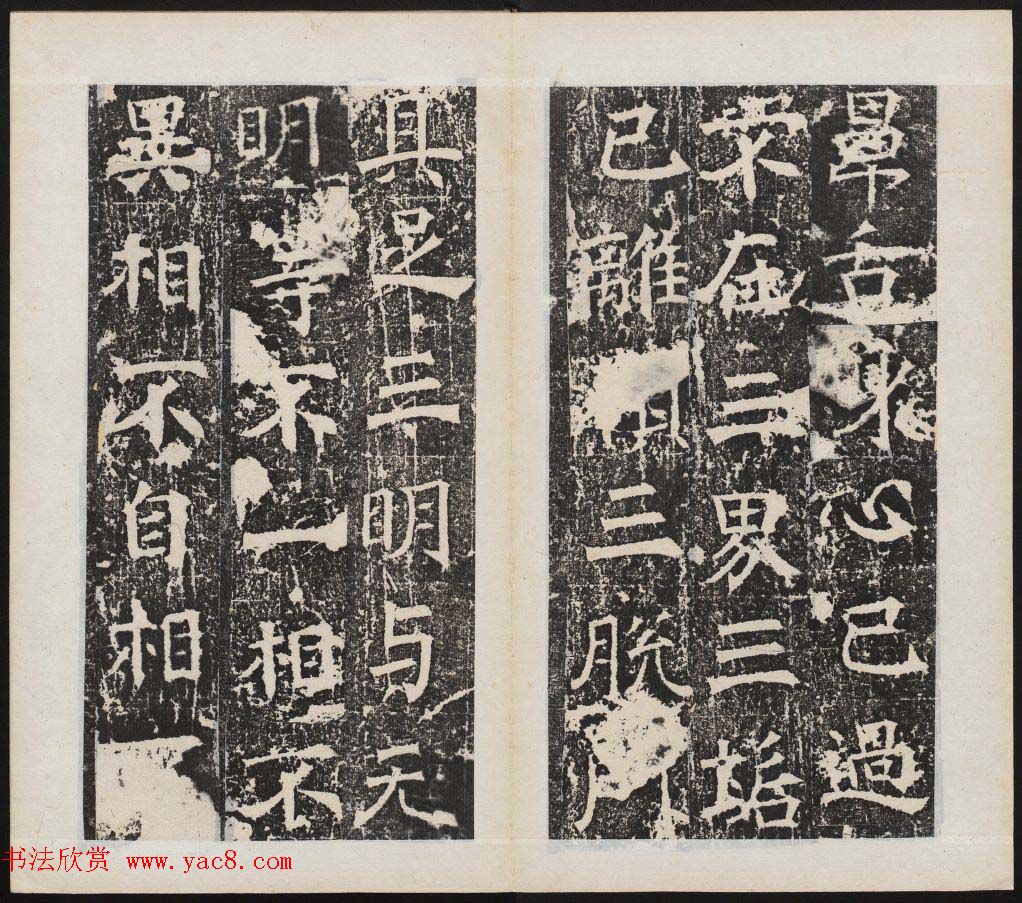 鼻舌身心已過
不在三界三垢
已離三脫門
具足三明与无
明等不一相不
異相不自相
书法欣赏 www.yac8.com